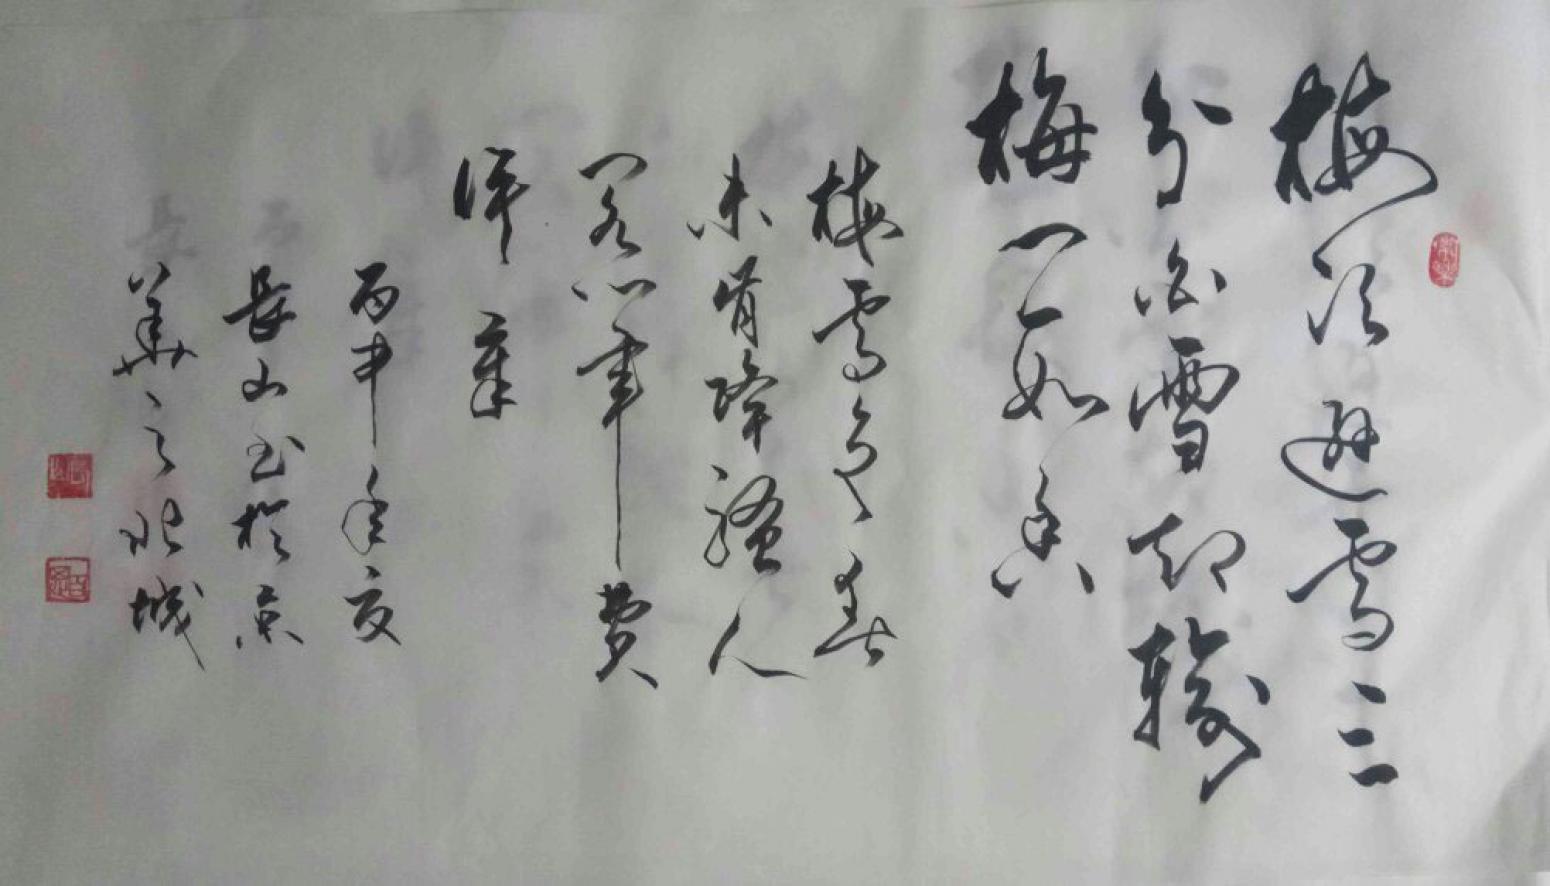 梅須遜雪三
分白雪却輸
梅一段香
梅雪爭春
未肯降騷人
閣筆費
評章
丙申年夏
長山书於京
華之北城